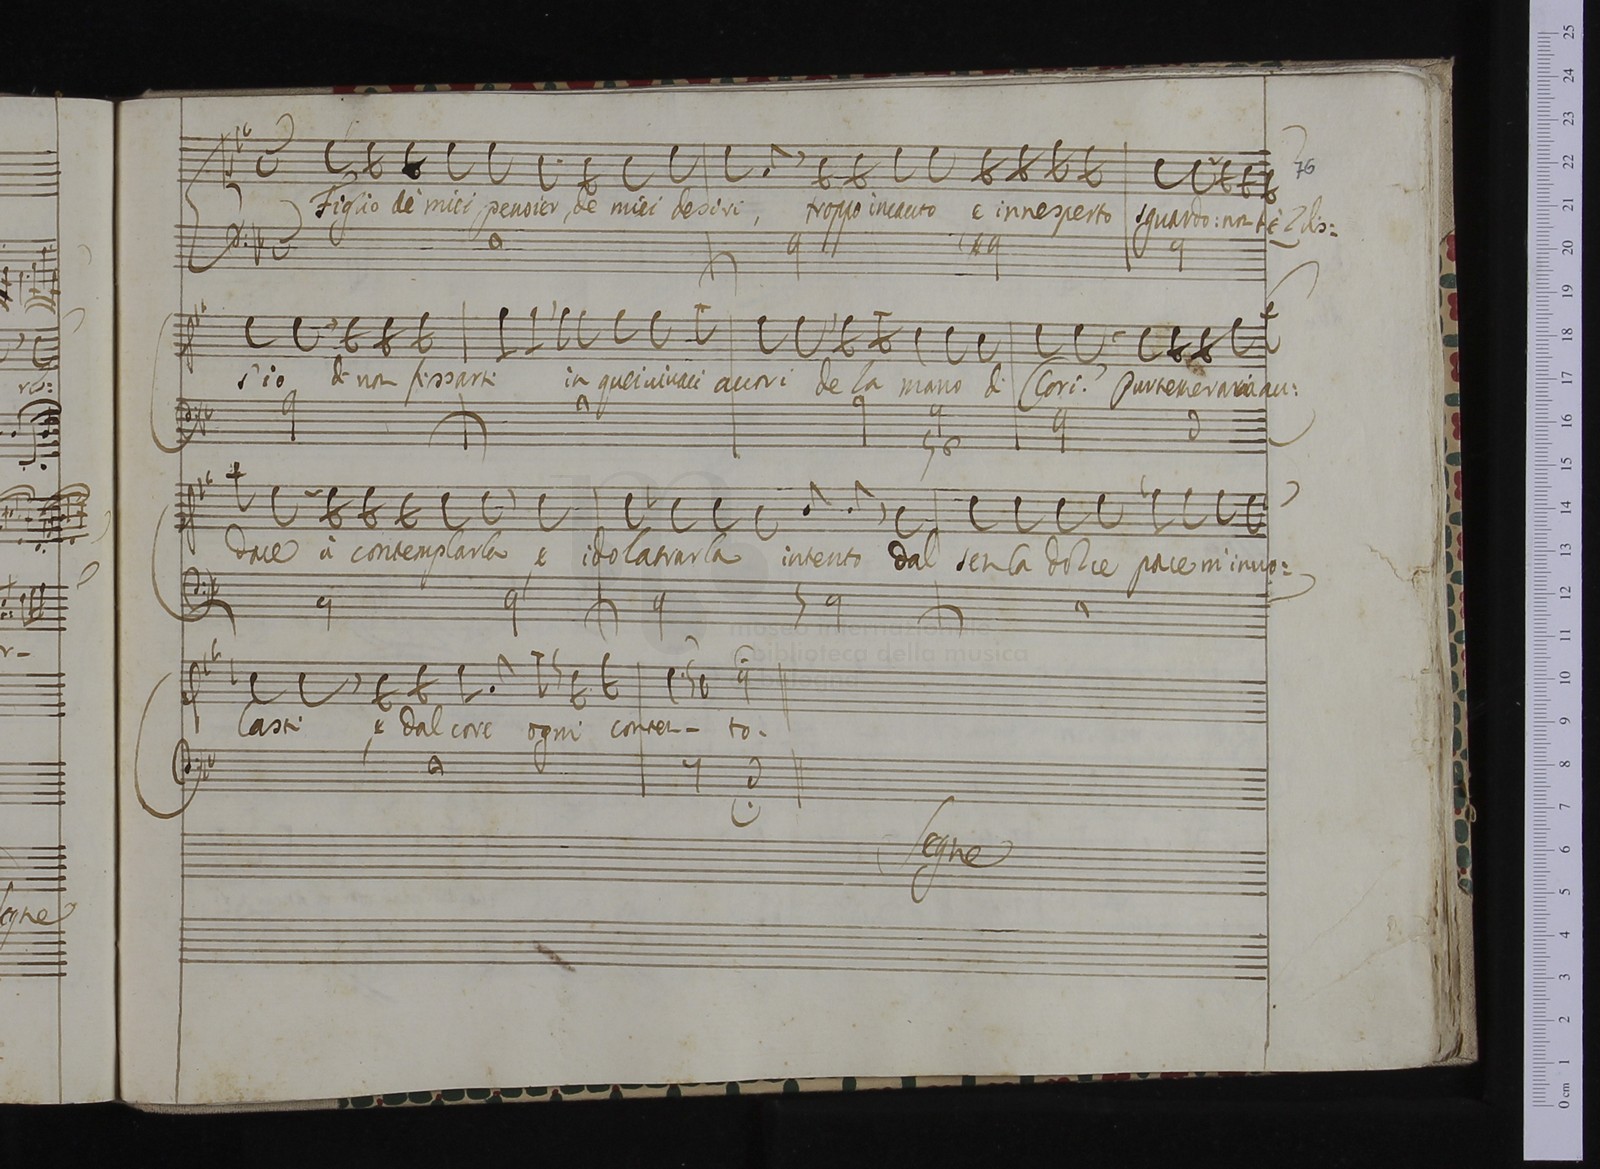 76
Figlio de miei pensier, de miei desiri, troppo incauto e innesperto sguardo: non ti
s'io di non fissarti in quei vivaci avori de la mano di Clori? Pur temerario au:
dace à contemplarla e idolatrarla intento dal sen la dolce pace m'invo:
lasti e dal core ogni conten- to.
museo internazionale
biblioteca della musica
Segue
Segue